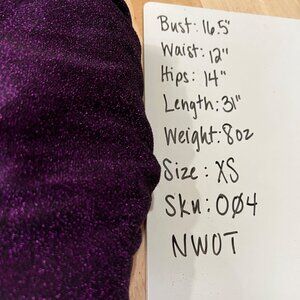 Bust: 16.5"
Waist: 12"
Hips: 14"
Length: 31"
Weight: 8oz
Size: XS
Sku: 0Ø4
NWOT